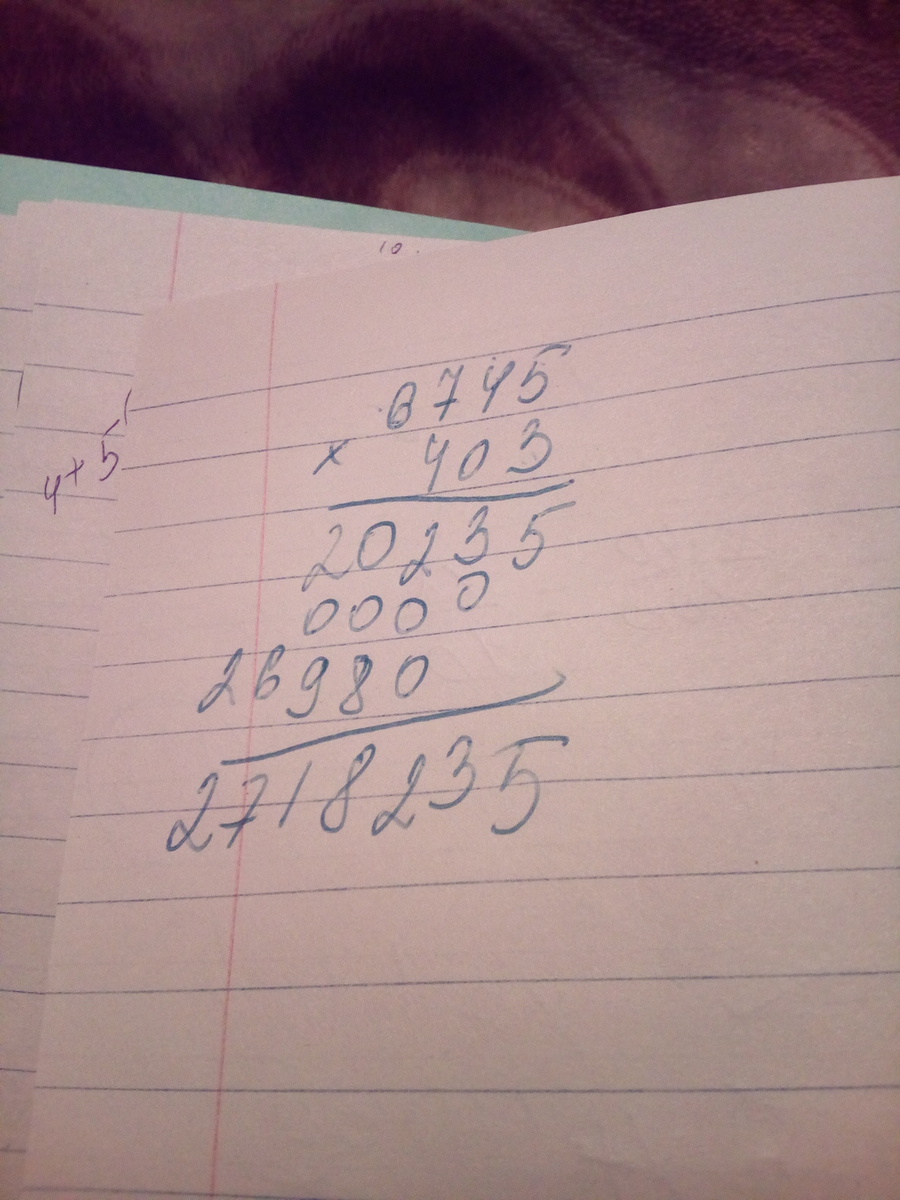 10.
4+5
6745
× 403
20235
0000
26980
2718235